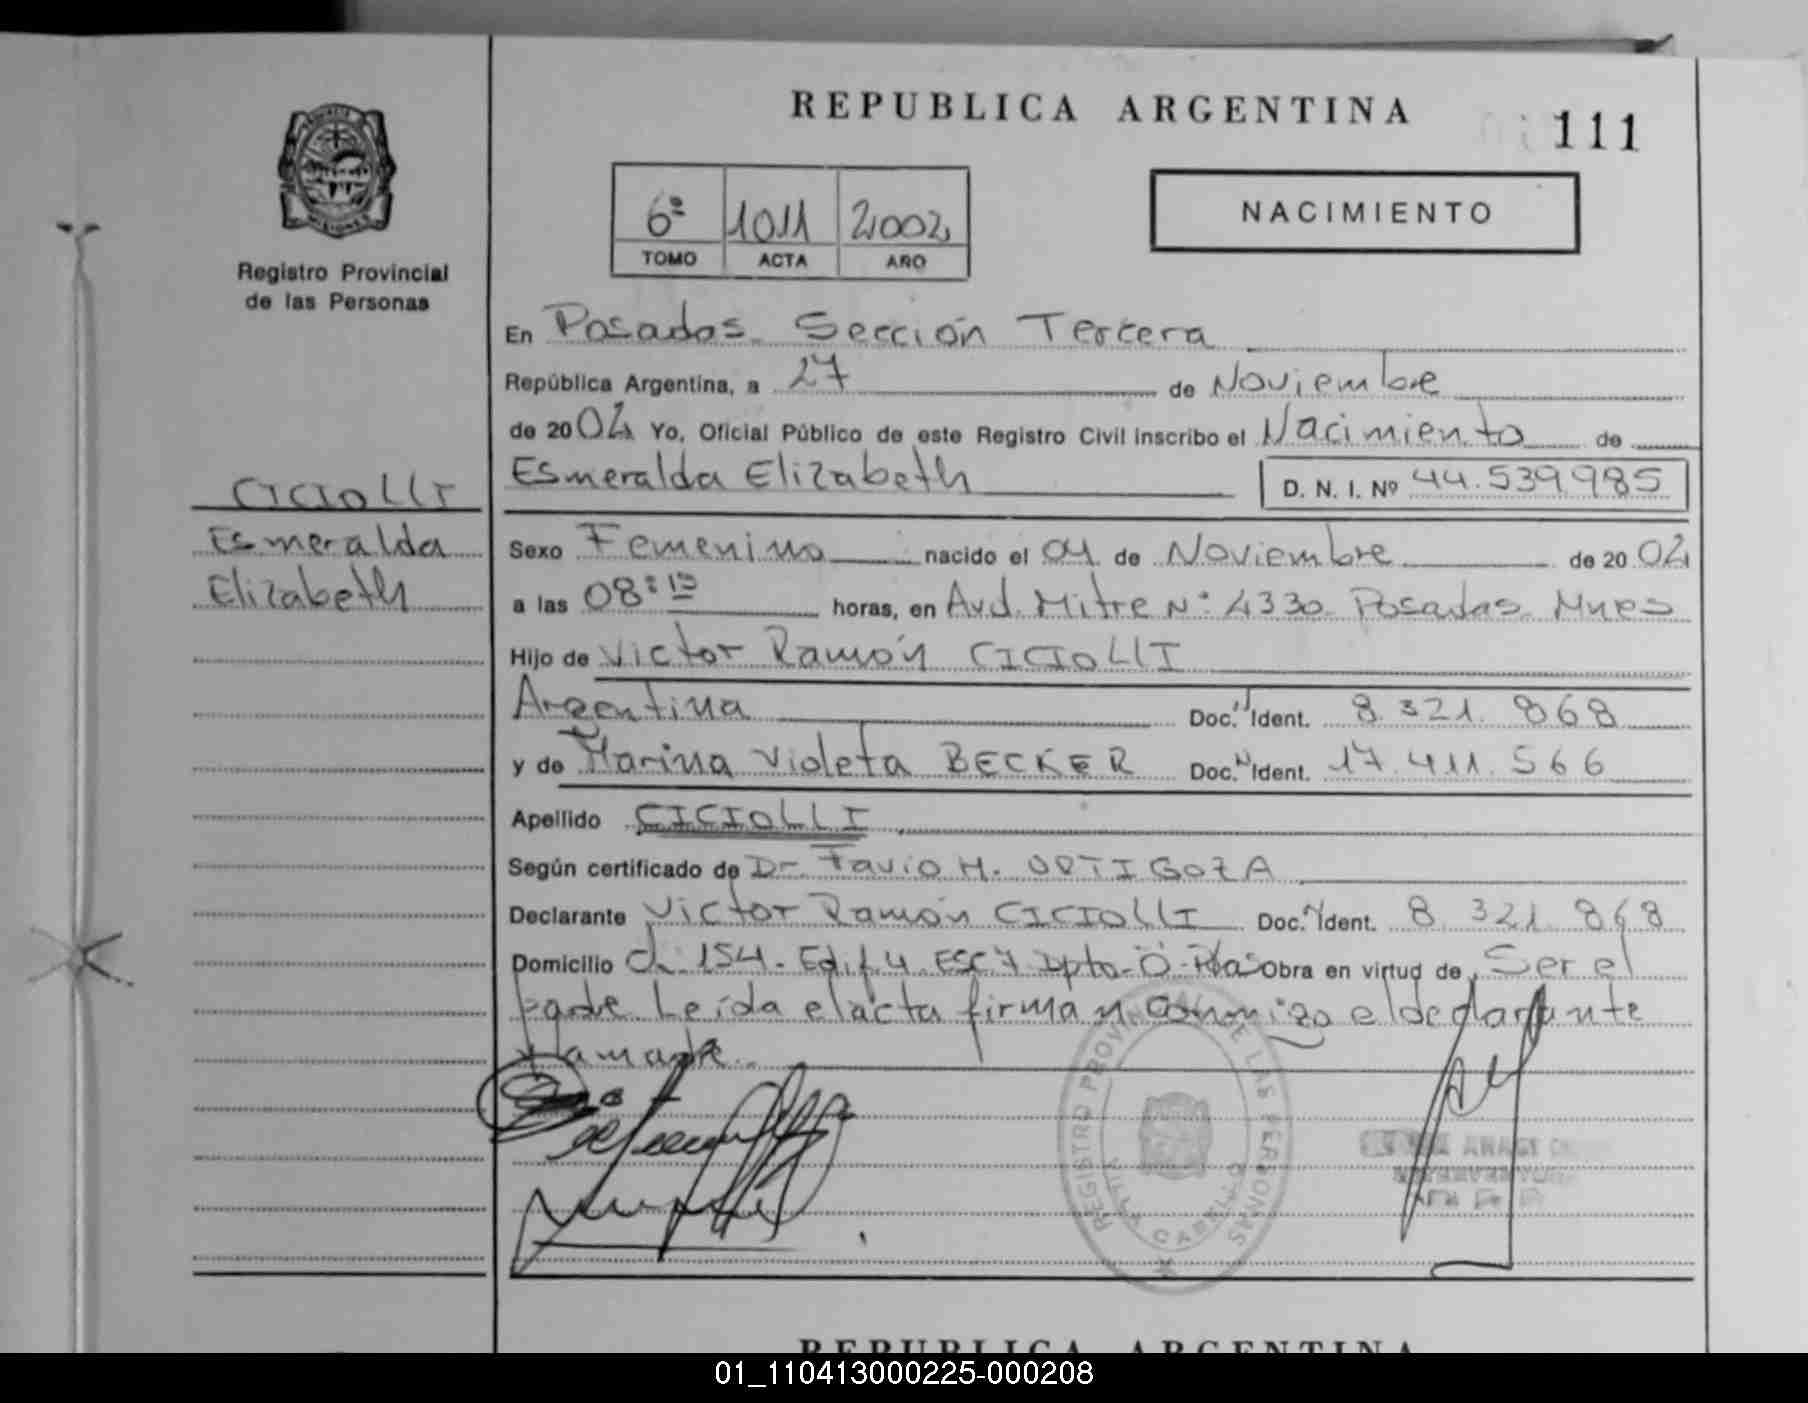 REPUBLICA ARGENTINA
111
Registro Provincial
de las Personas
6º 1011 2002
TOMO ACTA AÑO
NACIMIENTO
En Posadas Sección Tercera
República Argentina, a 27 de Noviembre
de 2002 Yo, Oficial Público de este Registro Civil inscribo el Nacimiento de
Esmeralda Elizabeth D. N. I. Nº 44.539985
CICIOLLI
Esmeralda
Elizabeth
Sexo Femenino nacido el 04 de Noviembre de 2002
a las 08:15 horas, en Avd. Mitre Nº 2330 Posadas Mnes
Hijo de Victor Ramón CICIOLLI
Argentina Doc. Ident. 8.321.868
y de Marina Violeta BECKER Doc. Ident. 17.411.566
Apellido CICIOLLI
Según certificado de Dr. Favio H. ORTIGOZA
Declarante Victor Ramón CICIOLLI Doc. Ident. 8.321.868
Domicilio Ch. 154. Edif. 4 ESC 7 Dpto. Obra en virtud de Ser el
padre Leída el acta firman conmigo el declarante
y la madre.
REGISTRO PROVINCIAL DE LAS PERSONAS
VILLA CABELLO
REPUBLICA ARGENTINA
01_110413000225-000208